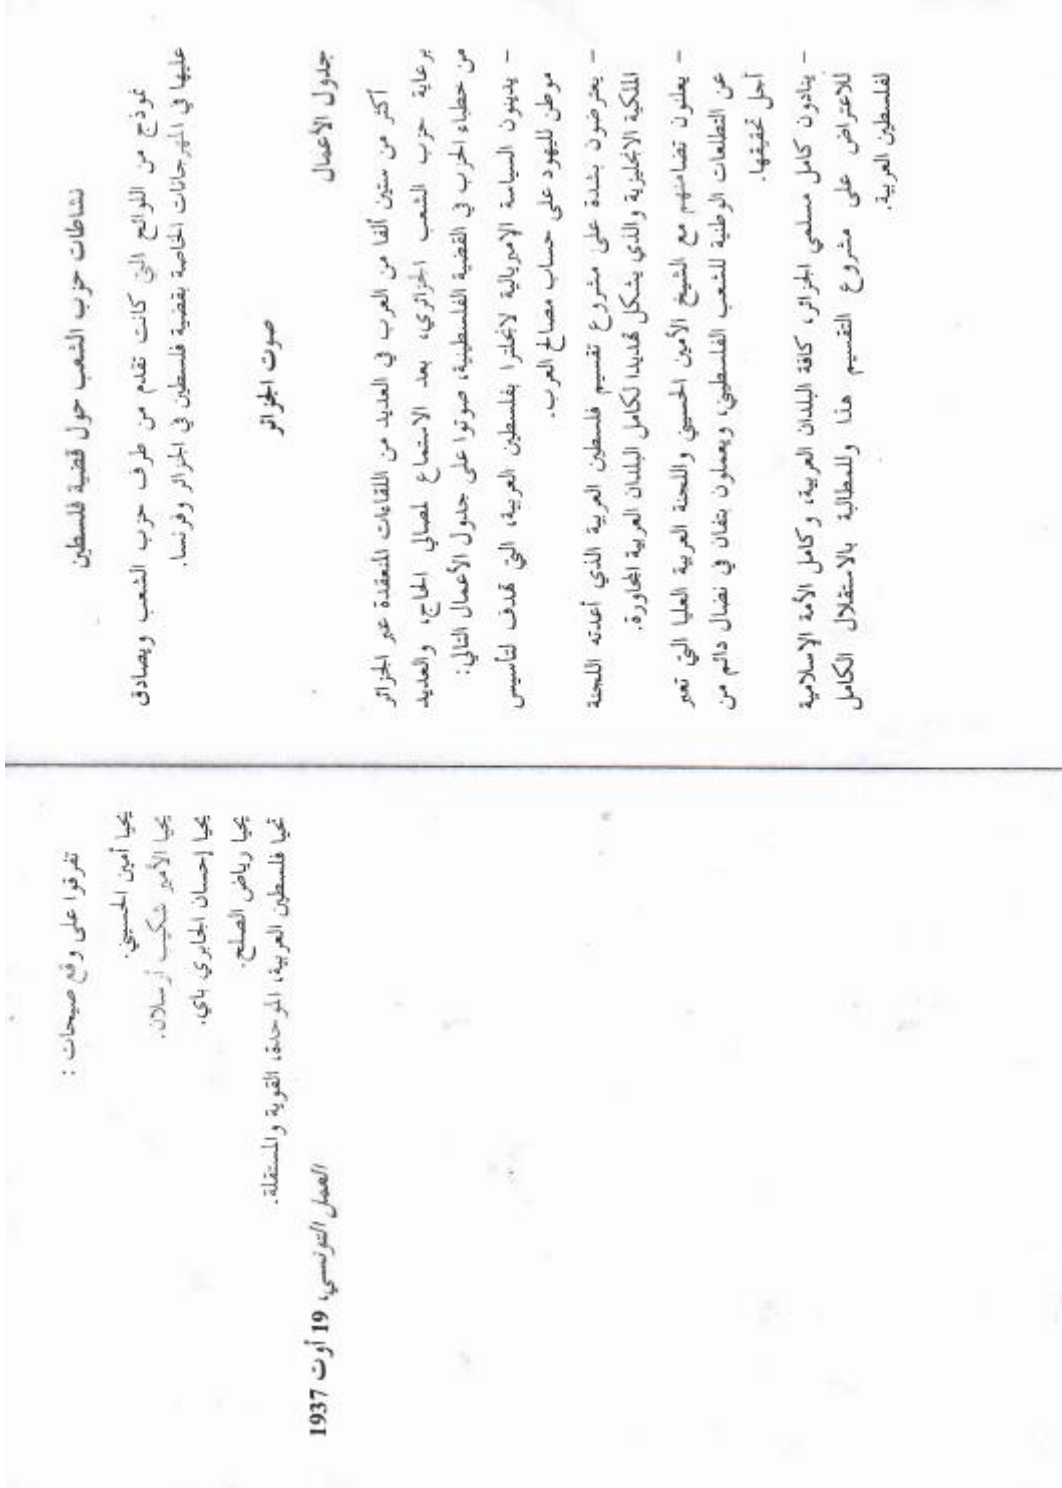 نشاطات حزب الشعب حول قضية فلسطين
نموذج من اللوائح التي كانت تقدم من طرف حزب الشعب ويصادق
عليها في المهرجانات الخاصة بقضية فلسطين في الجزائر وفرنسا.
صوت الجزائر
جدول الأعمال
أكثر من ستين ألفا من العرب في العديد من اللقاءات المنعقدة عبر الجزائر
برعاية حزب الشعب الجزائري، بعد الاستماع لمصالي الحاج، والعديد
من خطباء الحزب في القضية الفلسطينية، صوتوا على جدول الأعمال التالي:
- يدينون السياسة الإمبريالية لانجلترا بفلسطين العربية، التي تهدف لتأسيس
موطن لليهود على حساب مصالح العرب.
- يعترضون بشدة على مشروع تقسيم فلسطين العربية الذي أعدته اللجنة
الملكية الانجليزية والذي يشكل تهديدا لكامل البلدان العربية المجاورة.
- يعلنون تضامنهم مع الشيخ الأمين الحسيني واللجنة العربية العليا التي تعبر
عن التطلعات الوطنية للشعب الفلسطيني، ويعملون بتفان في نضال دائم من
أجل تحقيقها.
- ينادون كامل مسلمي الجزائر، كافة البلدان العربية، وكامل الأمة الإسلامية
للاعتراض على مشروع التقسيم هذا وللمطالبة بالاستقلال الكامل
لفلسطين العربية.
تفرقوا على وقع صيحات :
يحيا أمين الحسيني.
يحيا الأمير شكيب أرسلان.
يحيا إحسان الجابري باي.
يحيا رياض الصلح.
تحيا فلسطين العربية، الموحدة، القوية والمستقلة.
العمل التونسي، 19 أوت 1937